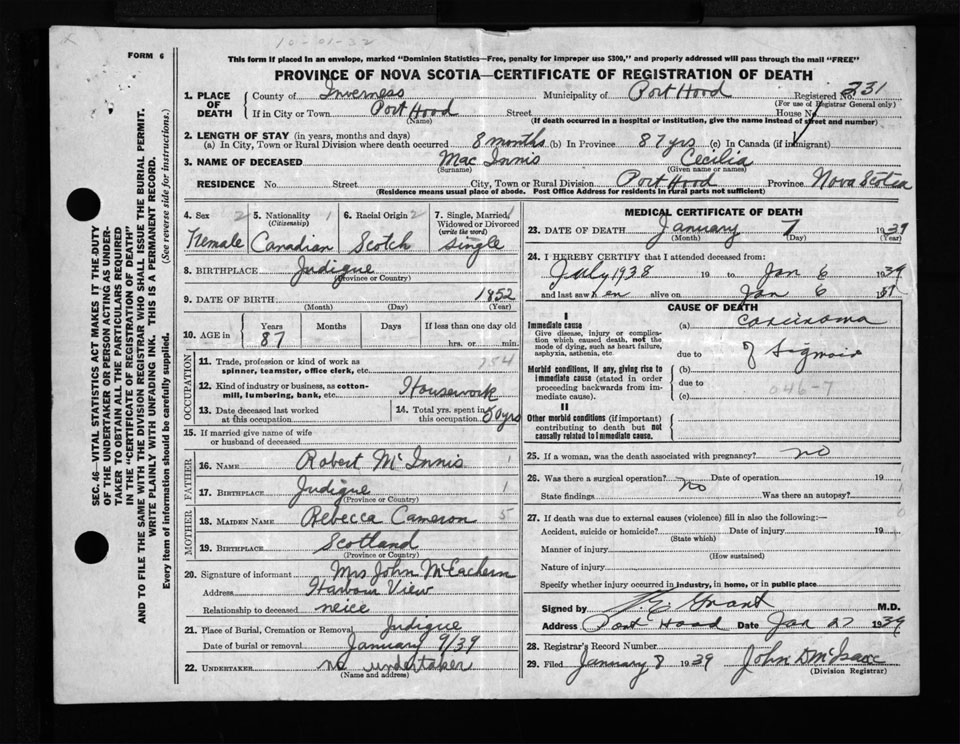 10-01-32
FORM 6
This form if placed in an envelope, marked "Dominion Statistics—Free, penalty for improper use $300," and properly addressed will pass through the mail "FREE"
PROVINCE OF NOVA SCOTIA—CERTIFICATE OF REGISTRATION OF DEATH
SEC. 46—VITAL STATISTICS ACT MAKES IT THE DUTY
OF THE UNDERTAKER OR PERSON ACTING AS UNDER-
TAKER TO OBTAIN ALL THE PARTICULARS REQUIRED
IN THE "CERTIFICATE OF REGISTRATION OF DEATH"
AND TO FILE THE SAME WITH THE DIVISION REGISTRAR WHO SHALL ISSUE THE BURIAL PERMIT.
WRITE PLAINLY WITH UNFADING INK. THIS IS A PERMANENT RECORD.
Every item of information should be carefully supplied. (See reverse side for instructions.)
1. PLACE OF DEATH County of Inverness Municipality of Port Hood Registered No. 331
(For use of Registrar General only)
If in City or Town Port Hood Street House No.
(Name) (If death occurred in a hospital or institution, give the name instead of street and number)
2. LENGTH OF STAY (in years, months and days)
(a) In City, Town or Rural Division where death occurred 8 months (b) In Province 87 yrs (c) In Canada (if immigrant)
3. NAME OF DECEASED Mac Innis Cecilia
(Surname) (Given name or names)
RESIDENCE No. Street City, Town or Rural Division Port Hood Province Nova Scotia
(Residence means usual place of abode. Post Office Address for residents in rural parts not sufficient)
4. Sex 2 Female
5. Nationality 1 (Citizenship) Canadian
6. Racial Origin 2 Scotch
7. Single, Married, Widowed or Divorced (write the word) 1 single
8. BIRTHPLACE Judique
(Province or Country)
9. DATE OF BIRTH 1852
(Month) (Day) (Year)
10. AGE in Years 87 Months Days If less than one day old
hrs. or min.
OCCUPATION
11. Trade, profession or kind of work as
spinner, teamster, office clerk, etc. 754
12. Kind of industry or business, as cotton-
mill, lumbering, bank, etc. Housework
13. Date deceased last worked
at this occupation
14. Total yrs. spent in
this occupation 50 yrs
15. If married give name of wife
or husband of deceased
FATHER
16. NAME Robert McInnis 1
17. BIRTHPLACE Judique 1
(Province or Country)
MOTHER
18. MAIDEN NAME Rebecca Cameron 5
19. BIRTHPLACE Scotland
(Province or Country)
20. Signature of informant Mrs John McEachern
Address Harbour View
Relationship to deceased neice
21. Place of Burial, Cremation or Removal Judique
Date of burial or removal January 9/39
22. UNDERTAKER no undertaker
(Name and address)
MEDICAL CERTIFICATE OF DEATH
23. DATE OF DEATH January 7 1939
(Month) (Day) (Year)
24. I HEREBY CERTIFY that I attended deceased from:
July 1938 19 to Jan 6 1939
and last saw h er alive on Jan 6 19
CAUSE OF DEATH
I
Immediate cause
Give disease, injury or complica-
tion which caused death, not the
mode of dying, such as heart failure,
asphyxia, asthenia, etc.
(a) Carcinoma
due to of Sigmoid
Morbid conditions, if any, giving rise to
immediate cause (stated in order
proceeding backwards from im-
mediate cause).
(b)
due to 046-7
(c)
II
Other morbid conditions (if important)
contributing to death but not
causally related to immediate cause.
25. If a woman, was the death associated with pregnancy? no
26. Was there a surgical operation? no Date of operation 19
State findings Was there an autopsy?
27. If death was due to external causes (violence) fill in also the following:—
Accident, suicide or homicide? Date of injury 19
(State which)
Manner of injury
(How sustained)
Nature of injury
Specify whether injury occurred in industry, in home, or in public place
Signed by Grant M.D.
Address Port Hood Date Jan 27 1939
28. Registrar's Record Number
29. Filed January 8 1939 John D McIsaac
(Division Registrar)